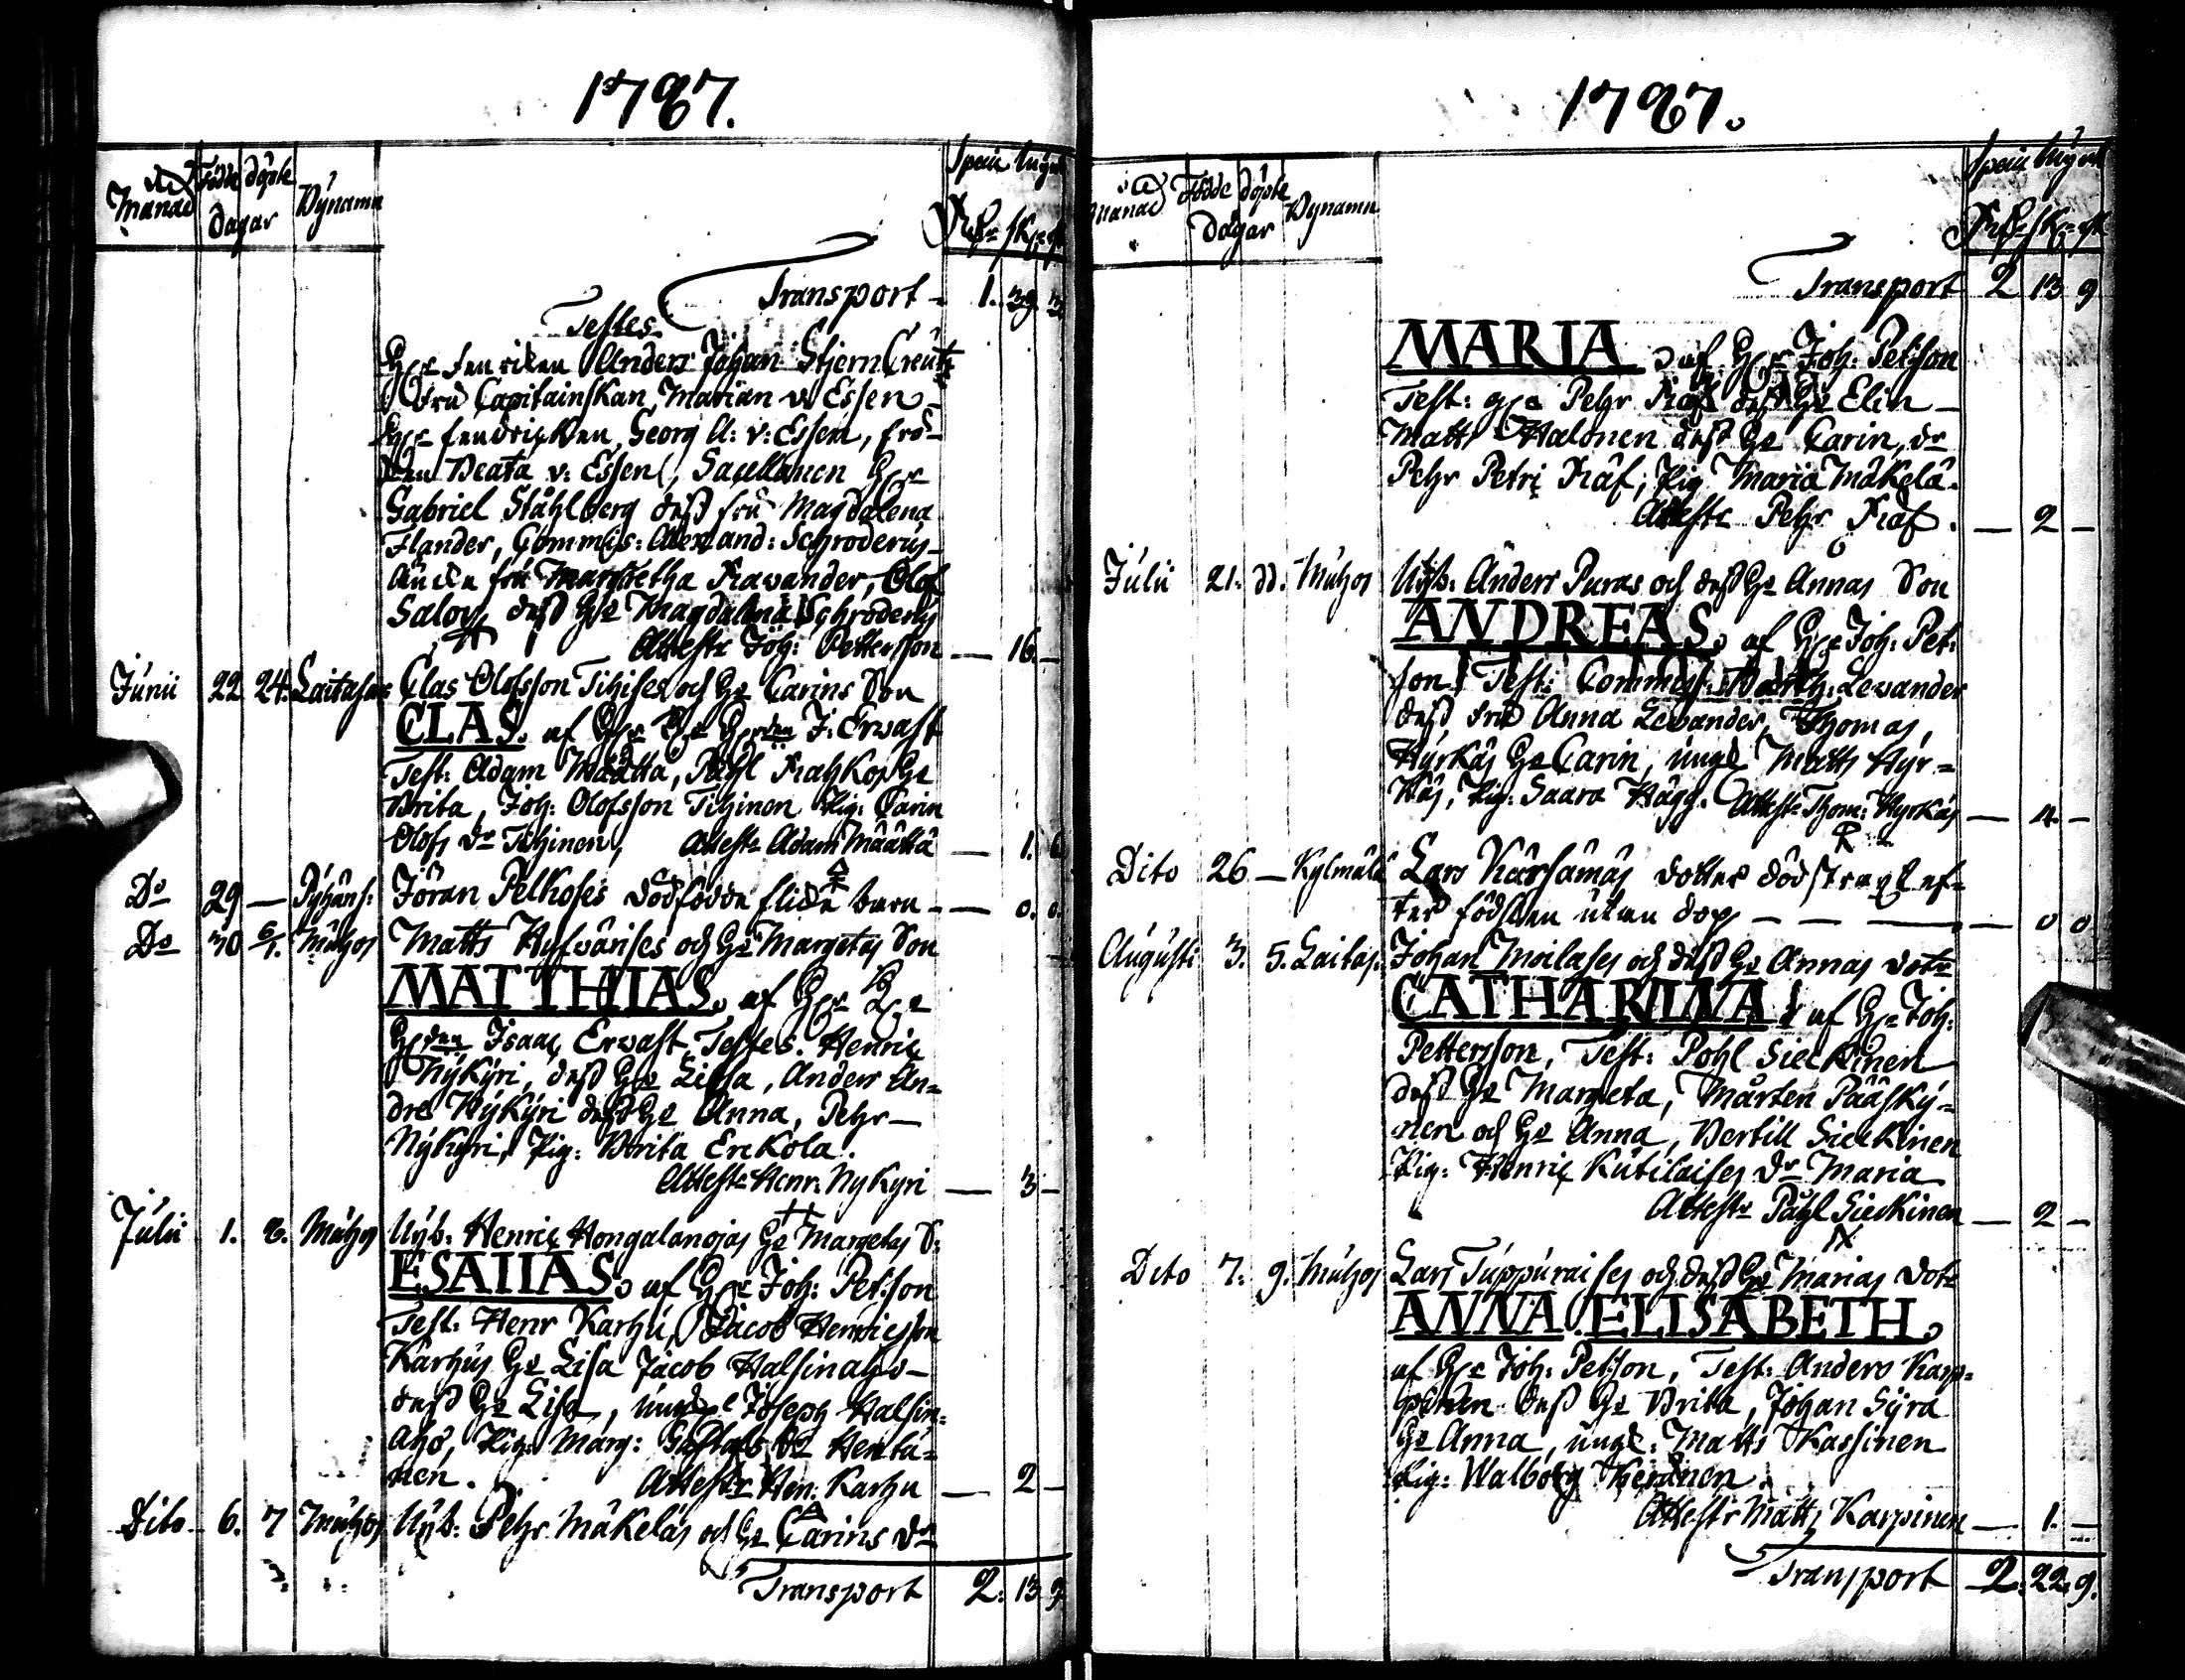 1787.
Manad Födde döpte Bÿnamn Speciu Mynt
Dagar Rdr sk. rst
Transport 1. 39. 3.
Testes
Hr Fendriken Anders Johan StjernCreutz
Fru Capitainskan Marian v. Essen
Hr fendricken Georg A: v: Essen, frö-
ken Beata v: Essen, Sacellanen Hr
Gabriel Ståhlberg dess fru Magdalena
Flander, Commis: Alexand: Schroderus
Änckefru Margretha Frawander, Olof
Saloy dess H. Magdalena Schroderus
Attest. Joh: Pettersson — 16. —
Junii 22 24. Laitasar Clas Olofsson Tihises och H. Carins Son
CLAS. af Hr J. Erwast
Test: Adam Määttä, Påhl Krahkos H.
Brita, Joh: Olofsson Tihinen Pig: Carin
Olofs dr Tihinen, Attest. Adam Määttä — 1. 6
Do 29 — Pÿhäns: Jöran Pelkoses dödfödda flicke barn — 0. 0.
Do 30 6/7. Muhos Matts Hyfvärises och H. Margetas Son
MATTHIAS. af Hr
Isaac Erwast, Testes. Henric
Nÿkÿri, dess H. Lissa, Anders An-
dre Nÿkÿri dess H. Anna, Pehr
Nÿkyri, Pig: Brita Erckola.
Attest. Henr. Nykyri — 3 —
Julii 1. 8. Muhos Nyb: Henric Hongalanojas H. Margetas S:
ESAIIAS. af Hr Joh: Petsson
Test: Henr Karhu, Jacob Henricsson
Karhus H. Lisa Jacob Halsinaho
dess H. Lisa, ungd. Joseph Halsin-
aho, Pig: Marg: Gustafs dr Hentu-
nen. Attestr Hen: Karhu — 2 —
Dito 6. 7 Muhos Nyb: Pehr Mäkeläs och H. Carins dr
Transport 2. 13. 9.
1787.
Manad Födde döpte Bynamn Speciu Mynt
Dagar Rdr sk. rst
Transport 2 13 9
MARIA af Hr Joh: Petsson
Test: Pehr Kräf dess H. Elin
Matts Halonen dess H. Carin, dr
Pehr Petri Kräf, Pig Maria Mäkelä.
Attestr Pehr Kräf. — 2 —
Julii 21. dd. Muhos Nyb: Anders Puras och dess H. Annas Son
ANDREAS. af Hr Joh: Pet:
son. Test: Commis: Levander
dess fru Anna Levander, Thomas
Hyrkäs H. Carin, ungd. Matts Hyr-
käs, Pig: Saara Hägg. Attestr Thom: Hyrkäs — 4. —
Dito 26 — Kylmälä Lars Kärsämäs dotter död straxt ef-
ter födslen utan dop — — — 0 0
Augusti 3. 5. Laitas: Johan Moilases och dess H. Annas dotr
CATHARINA af Hr Joh:
Pettersson, Test: Pohl Sieckinen
dess H. Margeta, Mårten Pääsky-
nen och H. Anna, Bertill Sieckinen
Pig: Henric Kutilaises dr Maria
Attestr Påhl Sieckinen — 2 —
Dito 7. 9. Muhos Lars Tuppuraises och dess H. Marias dotr
ANNA ELISABETH.
af Hr Joh: Petsson, Test: Anders Karp-
pinen dess H. Brita, Johan Syra
H. Anna, ungd: Matts Kassinen
Pig: Walborg Keränen.
Attestr Matts Karpinen — 1. —
Transport 2. 22. 9.